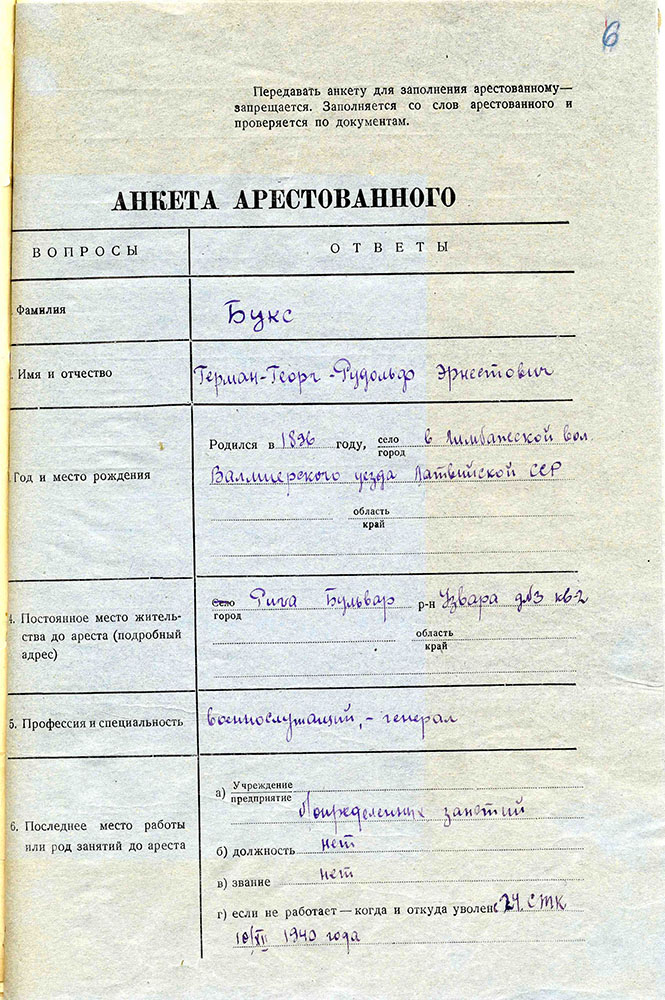 6
Передавать анкету для заполнения арестованному—
запрещается. Заполняется со слов арестованного и
проверяется по документам.
АНКЕТА АРЕСТОВАННОГО
ВОПРОСЫ ОТВЕТЫ
Фамилия Букс
Имя и отчество Герман-Георг-Рудольф Эрнестович
Родился в 1896 году, село в Лимбажской вол.
город
Год и место рождения Валмиерского уезда Латвийской ССР
область
край
Село Рига Бульвар р-н Узвара д№3 кв-2
город
4. Постоянное место житель-
ства до ареста (подробный
адрес)
область
край
5. Профессия и специальность военнослужащий, - генерал
6. Последнее место работы
или род занятий до ареста
а) Учреждение
предприятие
б/определенных занятий
б) должность нет
в) звание нет
г) если не работает — когда и откуда уволен с 24. СТК
10/XII 1940 года